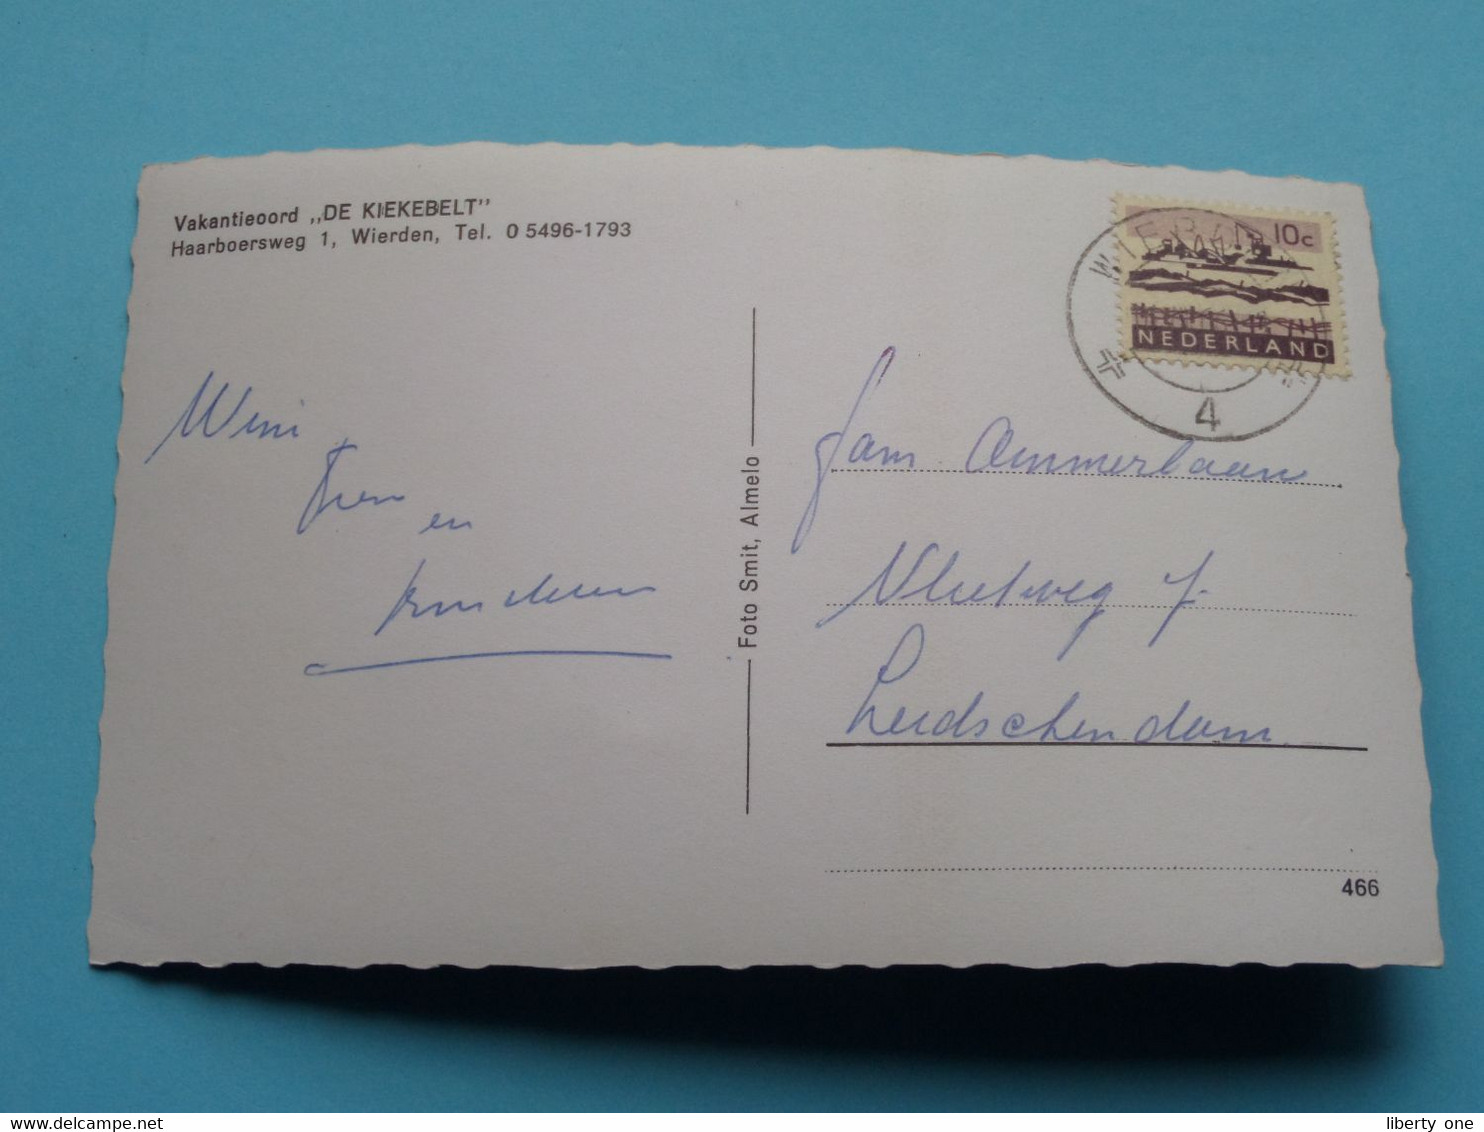 Vakantieoord „DE KIEKEBELT”
Haarboersweg 1, Wierden, Tel. 0 5496-1793
Wim
en
kinderen
Foto Smit, Almelo
WIERDEN
4
10c
NEDERLAND
Fam Ammerlaan
Vlietweg
Leidschendam
466
www.delcampe.net
liberty one